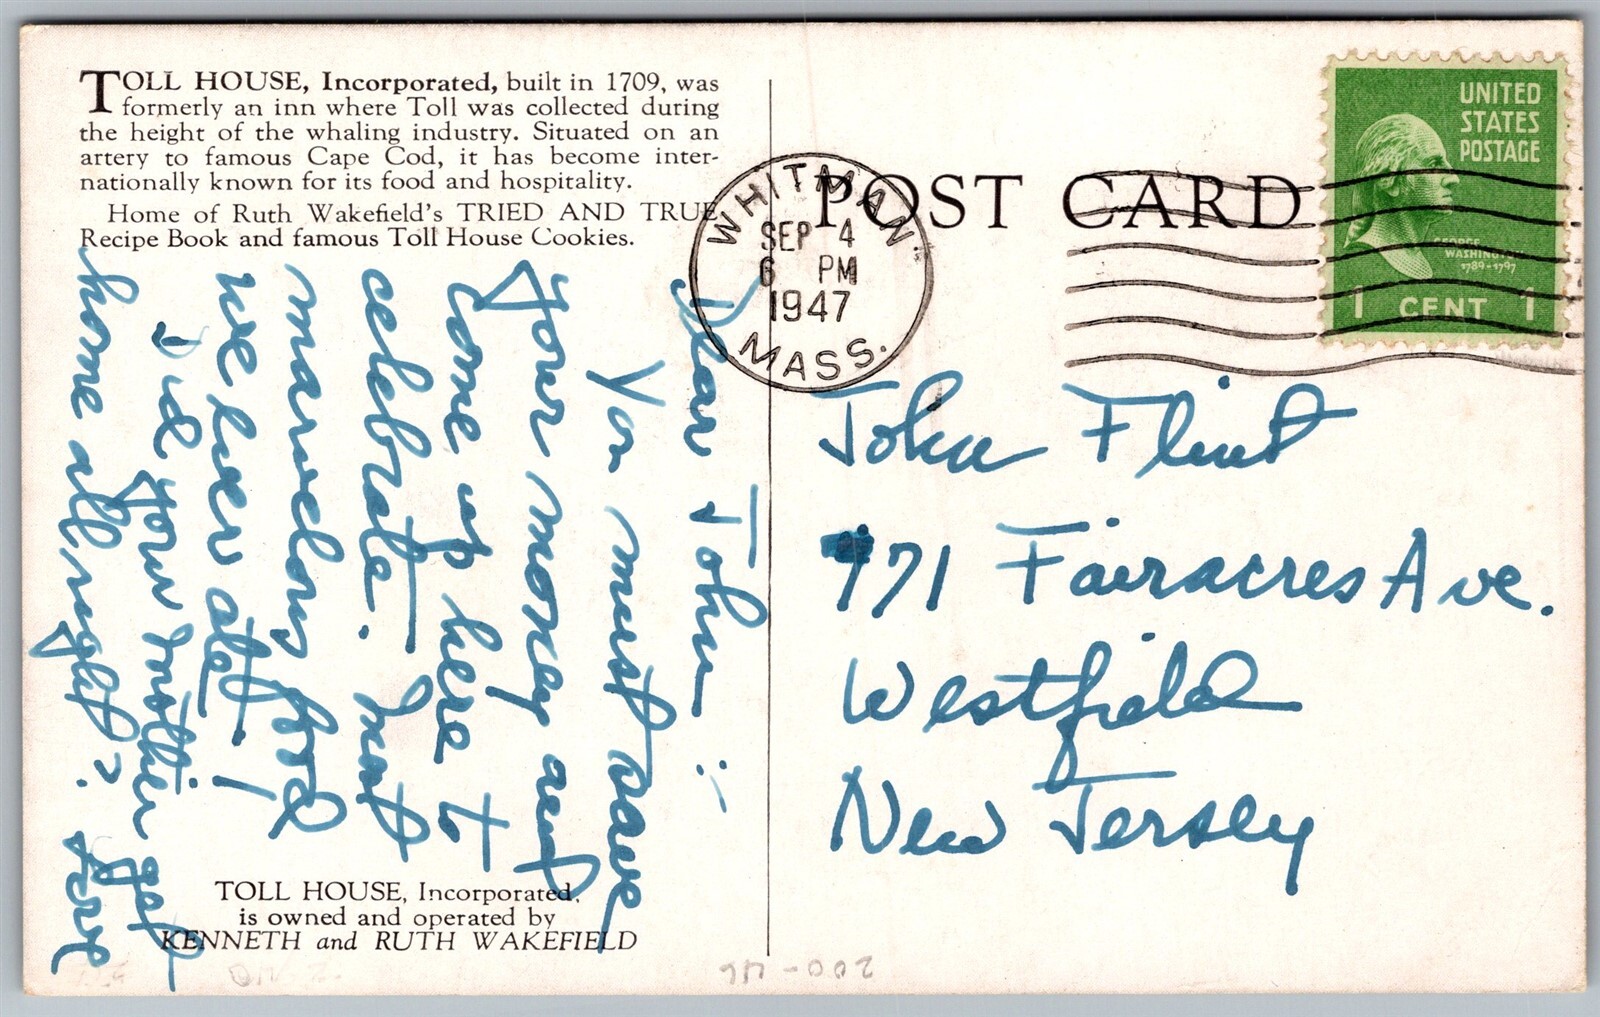 TOLL HOUSE, Incorporated, built in 1709, was
formerly an inn where Toll was collected during
the height of the whaling industry. Situated on an
artery to famous Cape Cod, it has become inter-
nationally known for its food and hospitality.
Home of Ruth Wakefield's TRIED AND TRUE
Recipe Book and famous Toll House Cookies.
Dear John:
You must save
your money and
come up here to
celebrate. What
marvelous food
we ate!
Did your mother get
home all right? Love
TOLL HOUSE, Incorporated,
is owned and operated by
KENNETH and RUTH WAKEFIELD
POST CARD
WHITMAN
SEP 4
6 PM
1947
MASS.
UNITED
STATES
POSTAGE
GEORGE
WASHINGTON
1789-1797
1 CENT 1
John Flint
971 Fairacres Ave.
Westfield
New Jersey